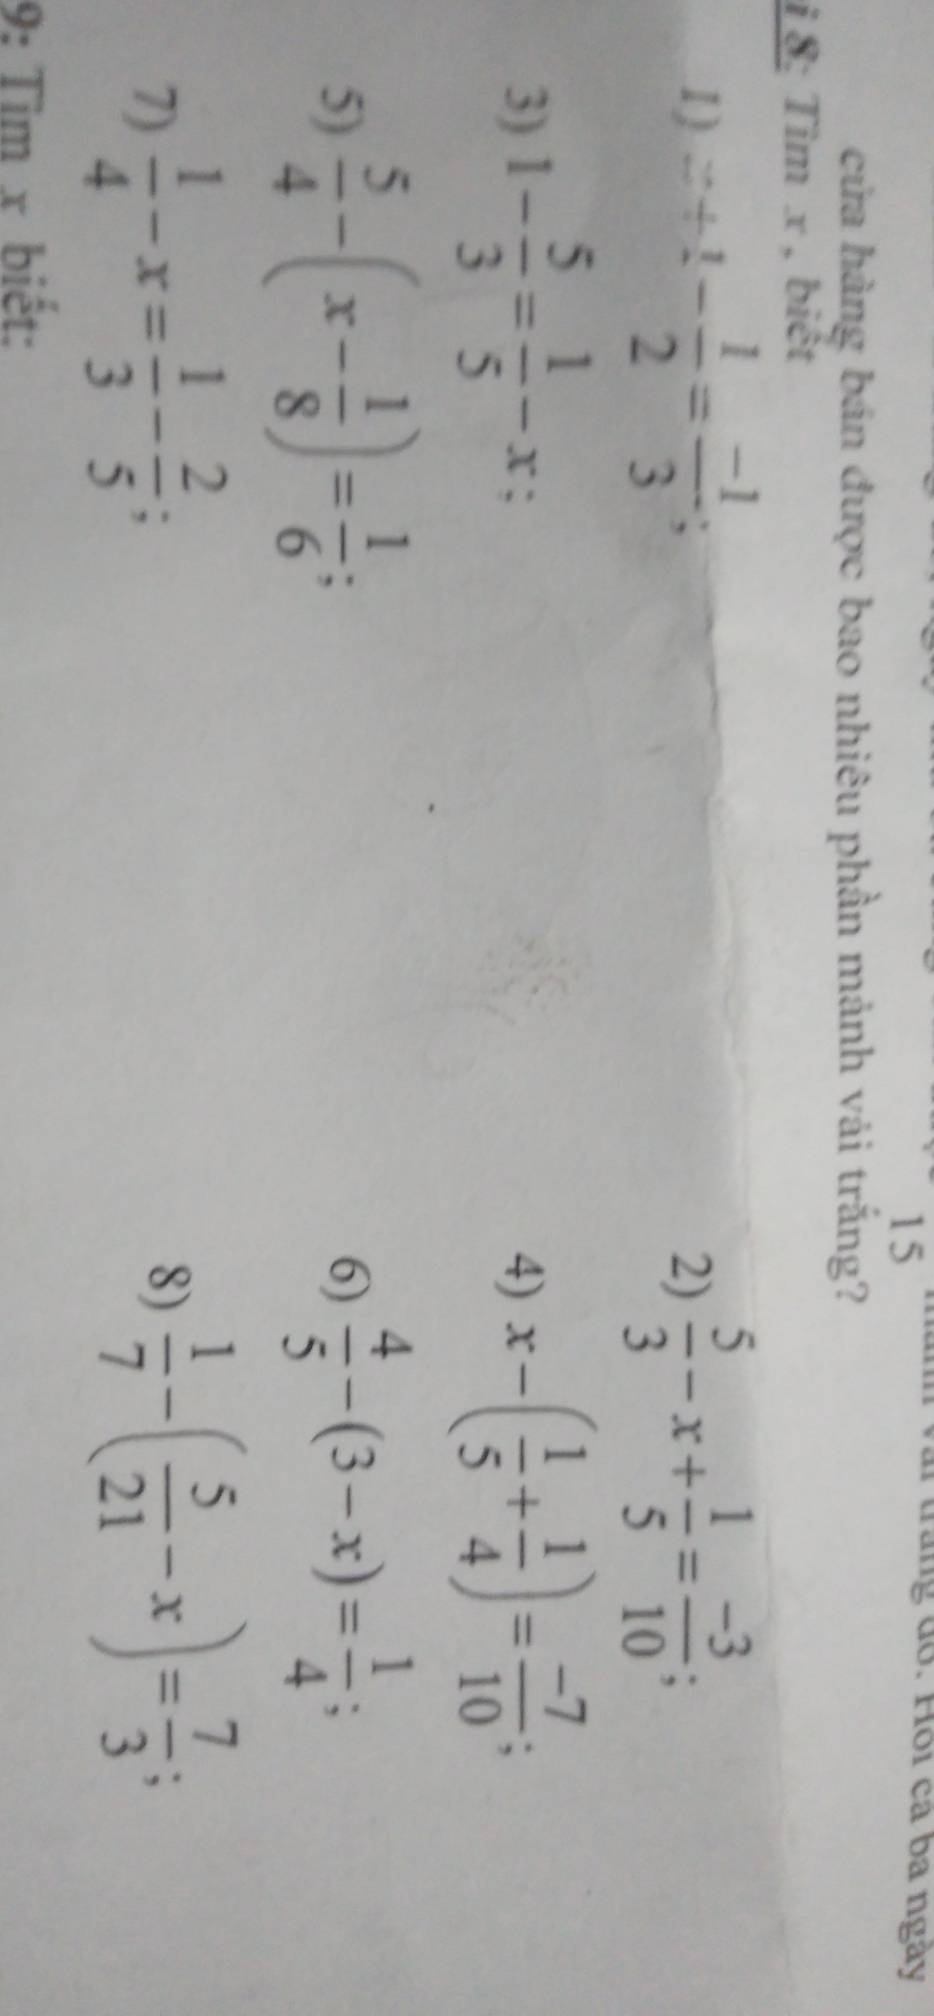 15 mảnh vải trắng đó. Hỏi cả ba ngày
cửa hàng bán được bao nhiêu phần mảnh vải trắng?
i 8: Tìm x, biết
1) x + 1 - 1/2 = -1/3;
2) 5/3 - x + 1/5 = -3/10;
3) 1 - 5/3 = 1/5 - x;
4) x - (1/5 + 1/4) = -7/10;
5) 5/4 - (x - 1/8) = 1/6;
6) 4/5 - (3 - x) = 1/4;
7) 1/4 - x = 1/3 - 2/5;
8) 1/7 - (5/21 - x) = 7/3;
9: Tìm x biết: